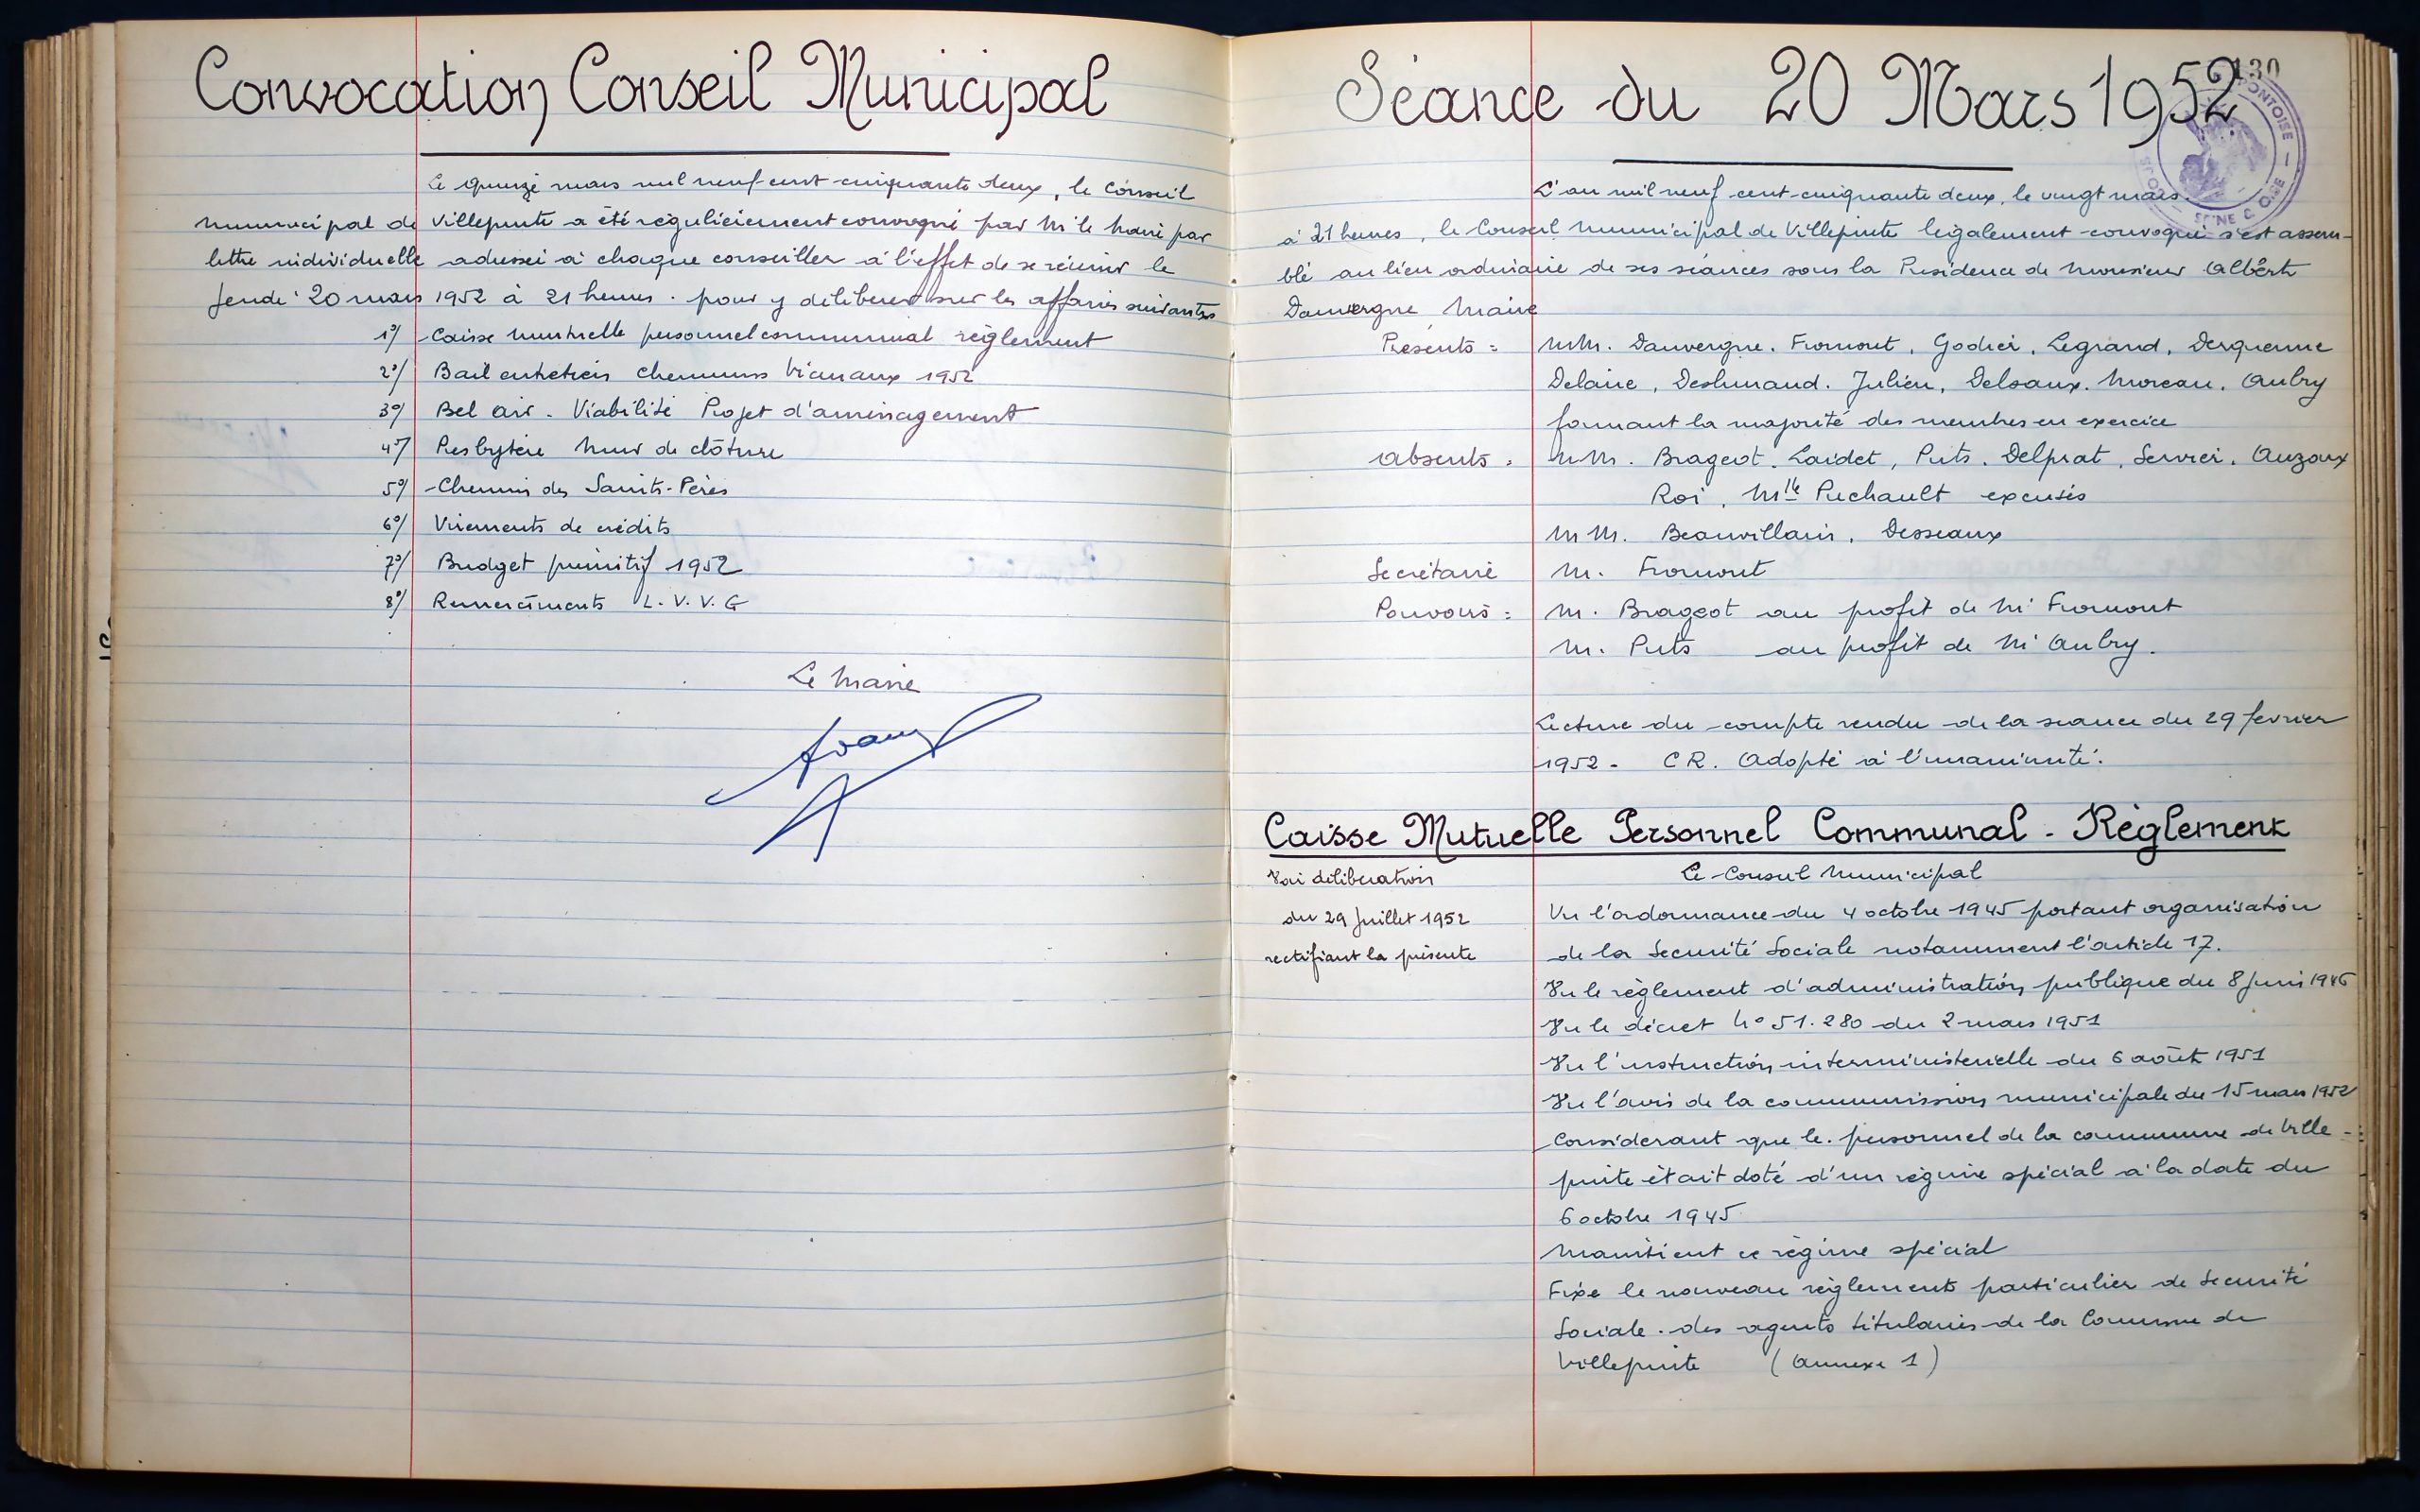 Convocation Conseil Municipal
Le quinze mars mil neuf cent cinquante deux, le Conseil
municipal de Villepinte a été régulièrement convoqué par Mr le Maire par
lettre individuelle adressée à chaque conseiller à l'effet de se réunir le
Jeudi 20 mars 1952 à 21 heures. pour y délibérer sur les affaires suivantes
1°/ Caisse mutuelle personnel communal règlement
2°/ Bail entretien chemins vicinaux 1952
3°/ Bel air - Viabilité Projet d'aménagement
4°/ Presbytère Mur de clôture
5°/ Chemin des Saints-Pères
6°/ Virements de crédits
7°/ Budget primitif 1952
8°/ Remerciments L.V.V.G
Le Maire
Séance du 20 Mars 1952
130
PONTOISE
SEINE & OISE
L'an mil neuf cent cinquante deux, le vingt mars
à 21 heures, le Conseil Municipal de Villepinte légalement convoqué s'est assem-
blé au lieu ordinaire de ses séances sous la Présidence de Monsieur Albert
Dauvergne Maire
Présents = MM. Dauvergne. Fromont, Godier, Legrand, Derquenne
Delaire, Deshmand. Julien, Delsaux. Moreau. Aubry
formant la majorité des membres en exercice
Absents = MM. Brageot. Laidet, Puts. Delprat, Servier. Auzoux
Roi, Mlle Puchault excusés
MM. Beauvillain, Desseaux
Secrétaire M. Fromont
Pouvoirs = M. Brageot au profit de Mr Fromont
M. Puts au profit de Mr Aubry.
Lecture du compte rendu de la séance du 29 février
1952 - CR. Adopté à l'unanimité.
Caisse Mutuelle Personnel Communal - Règlement
Voir délibération
du 29 Juillet 1952
rectifiant la présente
Le Conseil Municipal
Vu l'ordonnance du 4 octobre 1945 portant organisation
de la Sécurité Sociale notamment l'article 17.
Vu le règlement d'administration publique du 8 Juin 1946
Vu le décret N° 51.280 du 2 mars 1951
Vu l'instruction interministérielle du 6 août 1951
Vu l'avis de la commission municipale du 15 mars 1952
Considérant que le personnel de la commune de Ville-
pinte était doté d'un régime spécial à la date du
6 octobre 1945
Maintient ce régime spécial
Fixe le nouveau règlements particulier de Sécurité
Sociale. des agents titulaires de la Commune de
Villepinte (Annexe 1)